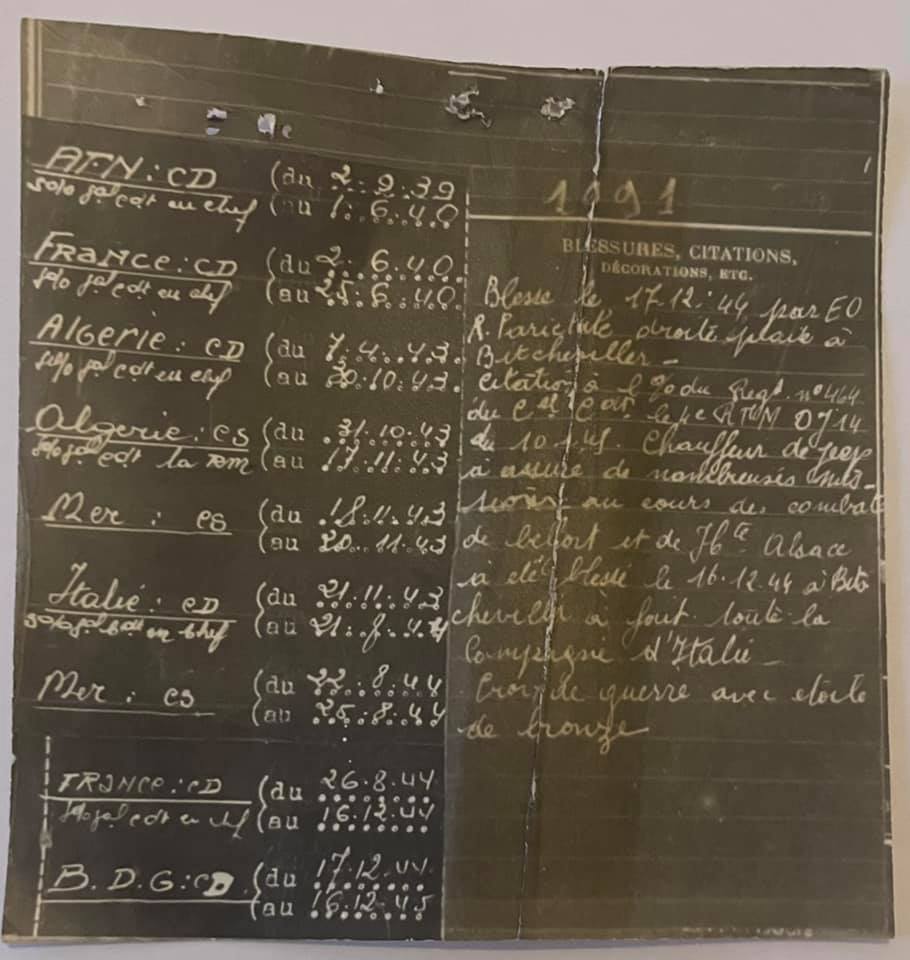 AFN : CD (du 2.9.39
(au 1.6.40
France : CD (du 2.6.40
en chef (au 25.6.40
Algerie : CD (du 7.4.43
en chef (au 30.10.43
Algerie : CS (du 31.10.43
(au 17.11.43
Mer : CS (du 18.11.43
(au 20.11.43
Italie : CD (du 21.11.43
en chef (au 21.8.44
Mer : CS (du 22.8.44
(au 25.8.44
FRANCE : CD (du 26.8.44
en chef (au 16.12.44
B.D.G : CD (du 17.12.44
(au 16.12.45
1091
BLESSURES, CITATIONS,
DÉCORATIONS, ETC.
Blesse le 17.12.44 par EO
droite plaie à
Bitcheviller -
citation à l' du Regt n° 464
du
du 10.1.45. Chauffeur de jeep
à assuré de nombreuses mis-
sions au cours des combats
de belfort et de Hte Alsace
à eté blessé le 16.12.44 à Bits
cheviller à fait toute la
Campagne d'Italie -
Croix de guerre avec etoile
de bronze